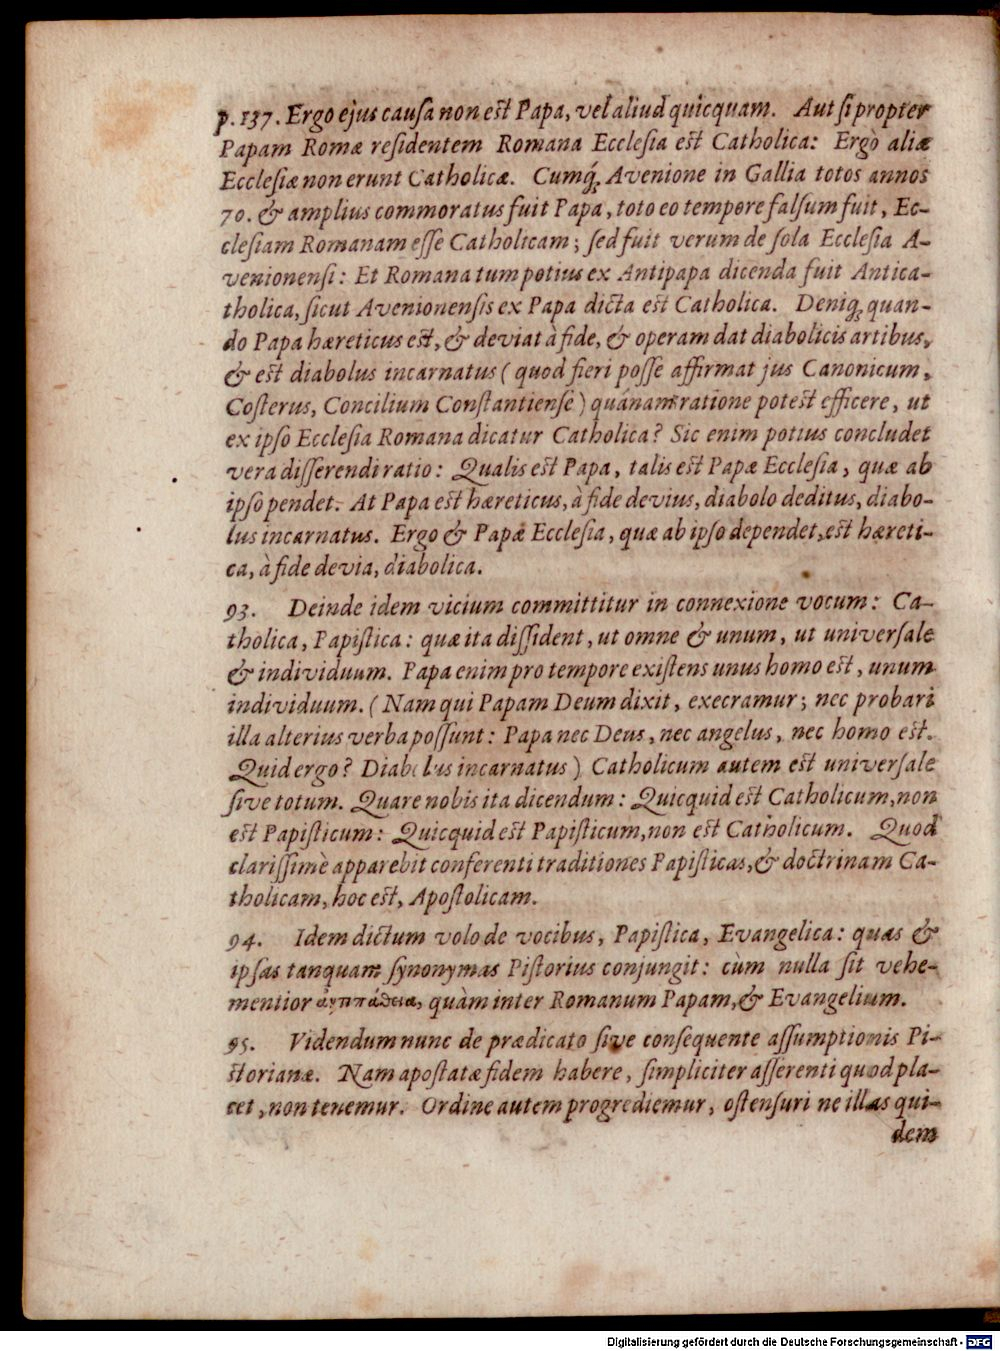 p. 137. Ergo ejus causa non est Papa, vel aliud quicquam. Aut si propter
Papam Romæ residentem Romana Ecclesia est Catholica: Ergò aliæ
Ecclesiæ non erunt Catholicæ. Cumq́; Avenione in Gallia totos annos
70. & amplius commoratus fuit Papa, toto eo tempore falsum fuit, Ec-
clesiam Romanam esse Catholicam; sed fuit verum de sola Ecclesia A-
venionensi: Et Romana tum potius ex Antipapa dicenda fuit Antica-
tholica, sicut Avenionensis ex Papa dicta est Catholica. Deniq; quan-
do Papa hæreticus est, & deviat à fide, & operam dat diabolicis artibus,
& est diabolus incarnatus (quod fieri posse affirmat jus Canonicum,
Costerus, Concilium Constantiense) quánam ratione potest efficere, ut
ex ipso Ecclesia Romana dicatur Catholica? Sic enim potius concludet
vera disserendi ratio: Qualis est Papa, talis est Papæ Ecclesia, quæ ab
ipso pendet. At Papa est hæreticus, à fide devius, diabolo deditus, diabo-
lus incarnatus. Ergo & Papæ Ecclesia, quæ ab ipso dependet, est hæreti-
ca, à fide devia, diabolica.
93. Deinde idem vicium committitur in connexione vocum: Ca-
tholica, Papistica: quæ ita dissident, ut omne & unum, ut universale
& individuum. Papa enim pro tempore existens unus homo est, unum
individuum. (Nam qui Papam Deum dixit, execramur; nec probari
illa alterius verba possunt: Papa nec Deus, nec angelus, nec homo est.
Quid ergo? Diabolus incarnatus) Catholicum autem est universale
sive totum. Quare nobis ita dicendum: Quicquid est Catholicum, non
est Papisticum: Quicquid est Papisticum, non est Catholicum. Quod
clarissimè apparebit conferenti traditiones Papisticas, & doctrinam Ca-
tholicam, hoc est, Apostolicam.
94. Idem dictum volo de vocibus, Papistica, Evangelica: quas &
ipsas tanquam synonymas Pistorius conjungit: cùm nulla sit vehe-
mentior ἀντιπάθεια, quàm inter Romanum Papam, & Evangelium.
95. Videndum nunc de prædicato sive consequente assumptionis Pi-
storianæ. Nam apostatæ fidem habere, simpliciter asserenti quod pla-
cet, non tenemur. Ordine autem progrediemur, ostensuri ne illas qui-
dem
Digitalisierung gefördert durch die Deutsche Forschungsgemeinschaft - DFG